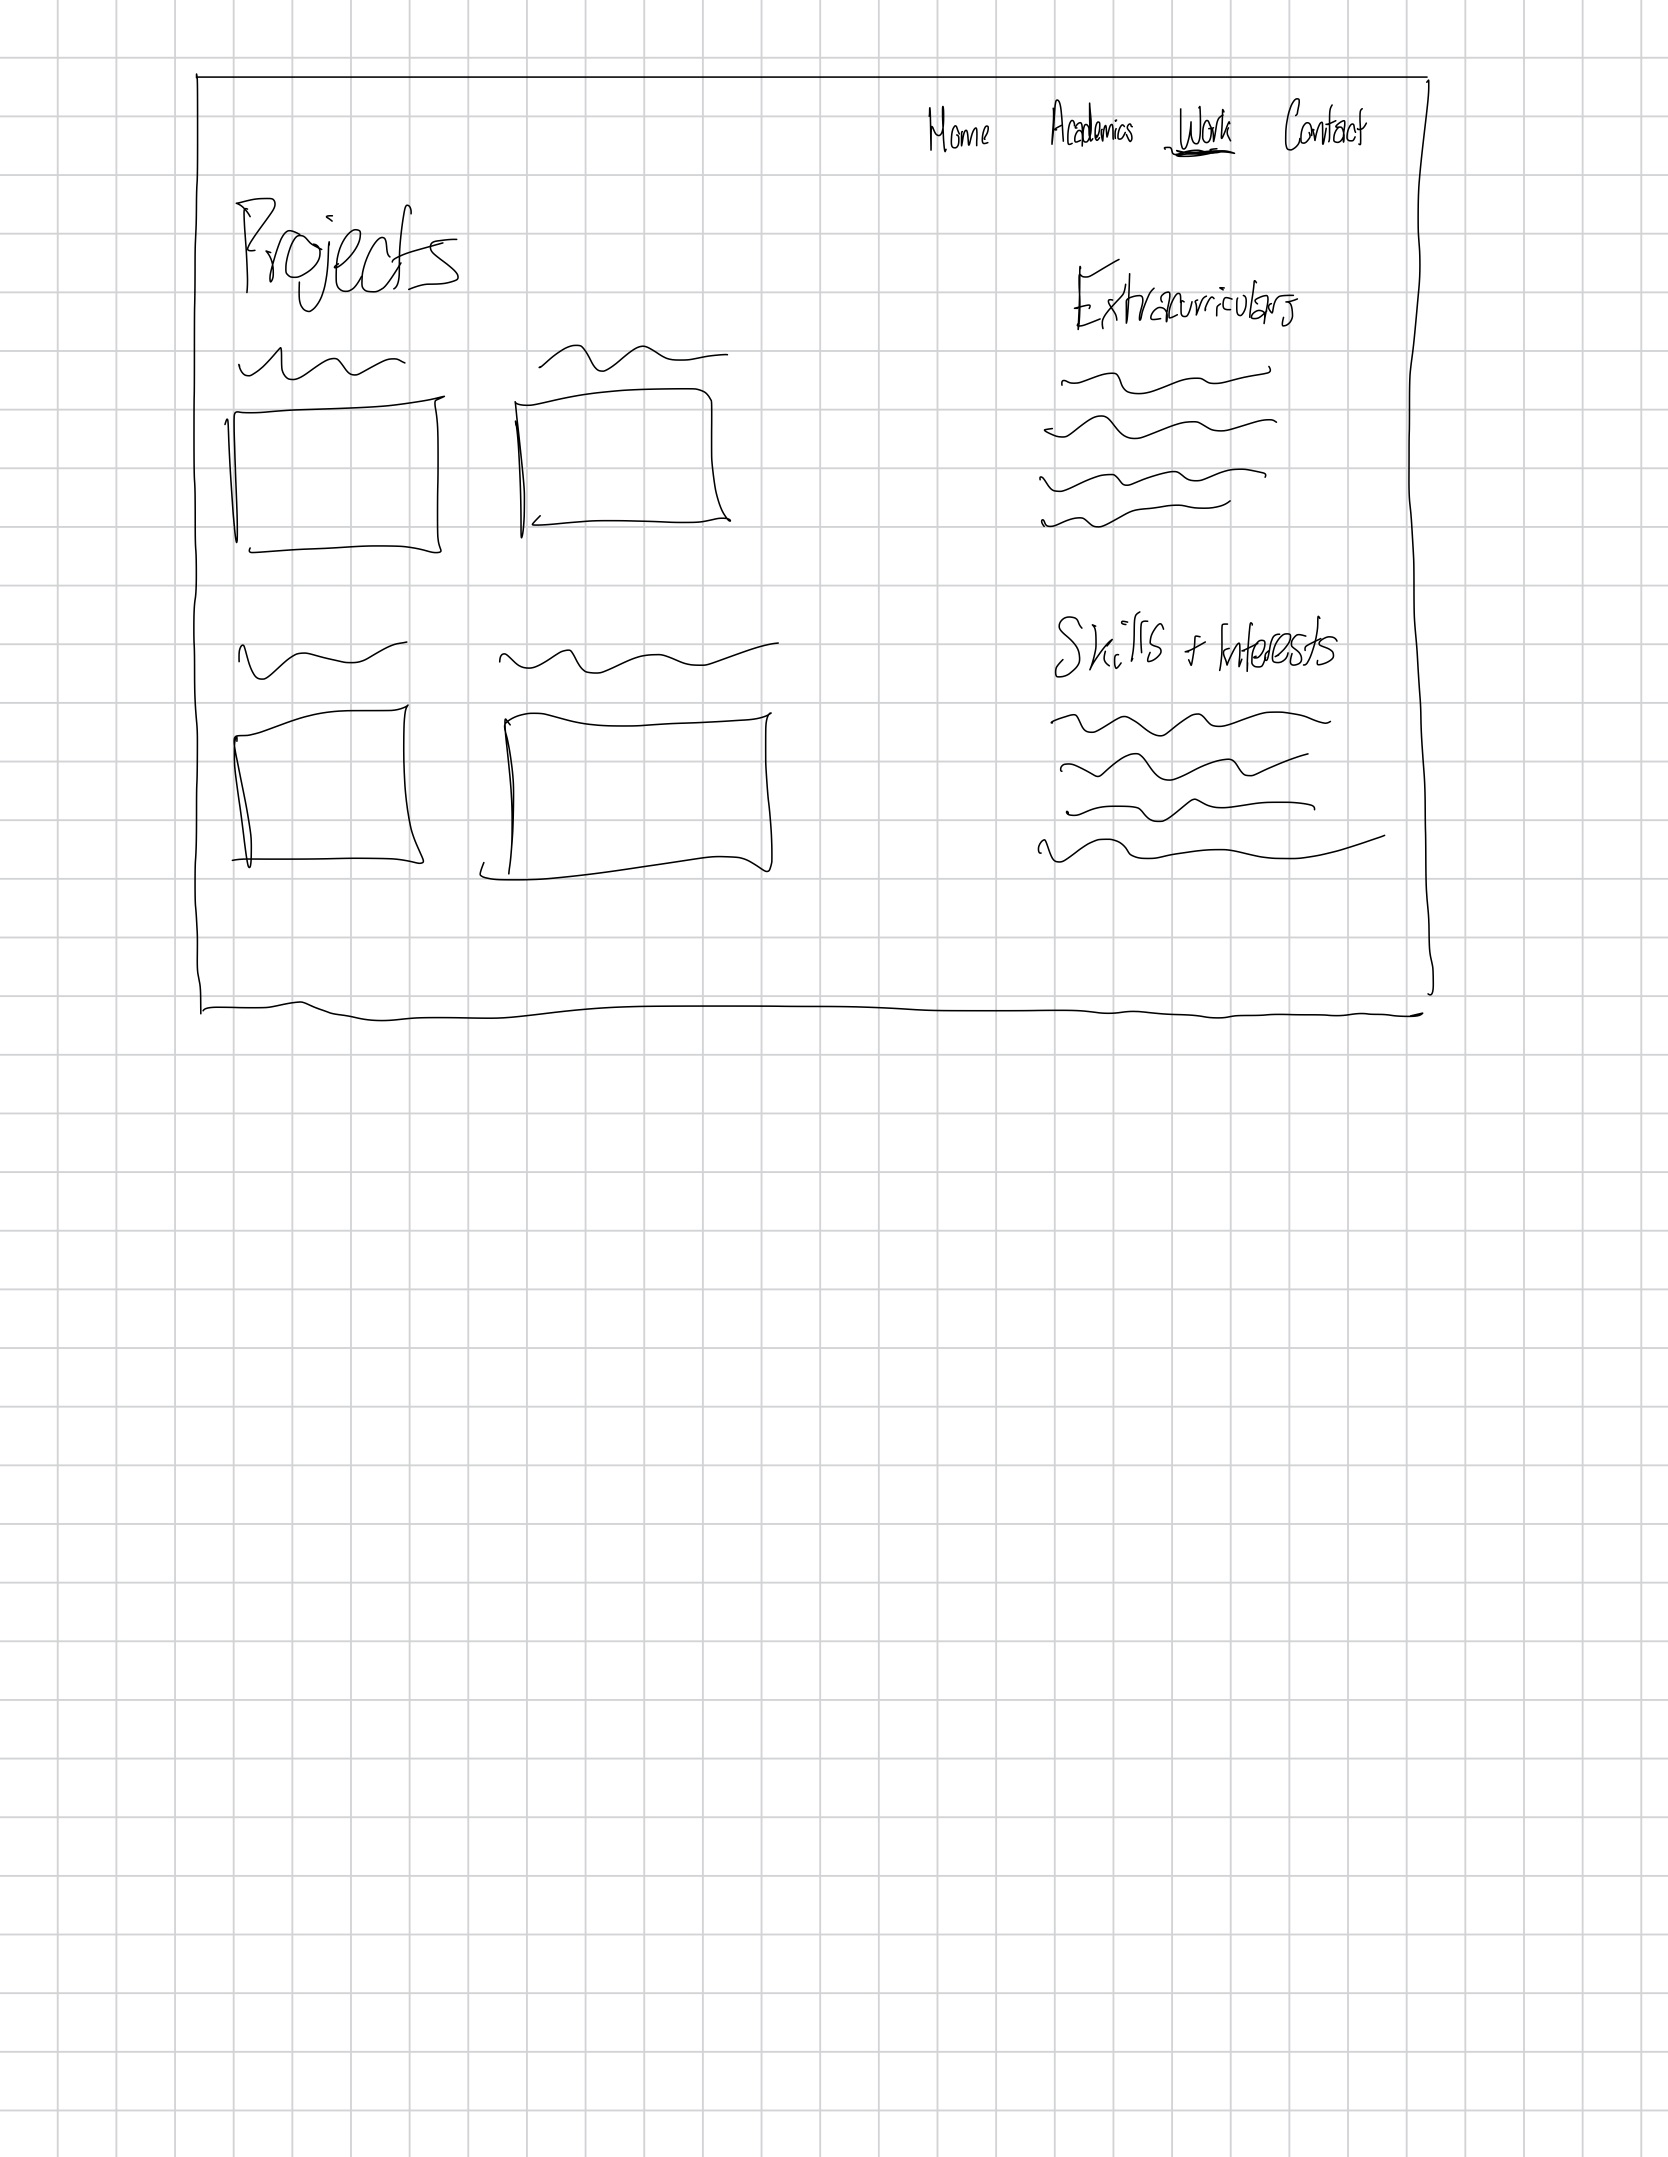 Home Academics Work Contact
Projects
Extracurriculars
Skills + Interests